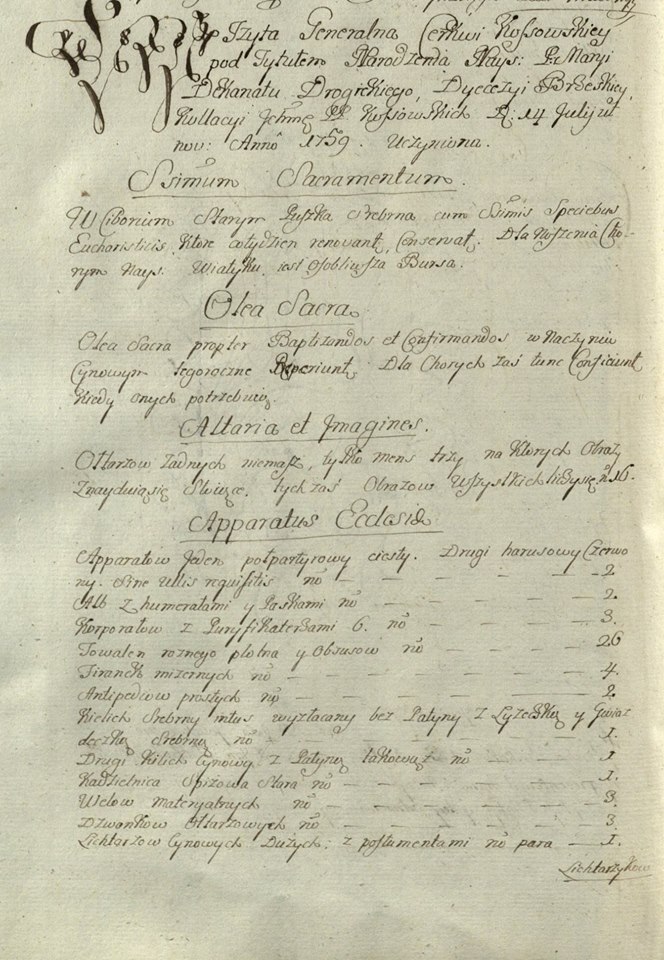 Wizyta Generalna Cerkwi Kossowskiey
pod Tytułem Narodzenia Nays: P. Maryi
Dekanatu Drogickiego, Dyecezyi Brzeskiey,
Kollacyi Jchmć PP Kossowskich D: 14 Julij
nov: Anno 1759. Uczyniona.
Ssimum Sacramentum.
W Ciborium Starym Puszka Srebrna cum Ssimis Speciebus
Eucharisticis, Ktore cotydzien renovant, Conservat. Dla Noszenia Cho-
rym Nays. Wiatyku iest Osobliwsza Bursa.
Olea Sacra
Olea Sacra propter Baptizandos et Confirmandos w Naczyniu
Cynowym tegoroczne Reperiunt. Dla Chorych zaś tunc Conficiunt
Kiedy onych potrzebuią.
Altaria et Jmagines.
Ołtarzow żadnych niemasz, tylko mens trzy na Ktorych Obrazy
Znayduiąsię Swięte, tych zaś Obrazow Wszystkich liczysię nō 16.
Apparatus Ecclesiæ
Apparatow Jeden połpartyrowy ciesty. Drugi harusowy Czerwo
ny. Sine Ullis requisitis nō — — — — — — 2
Alb z humerałami y Paskami nō — — — — — 2.
Korporałow z Puryfikaterzami 6. nō — — — — 3.
Towalen roznego płotna y Obrusow nō — — — — 26
Firanek mizernych nō — — — — — — 4.
Antipedyow prostych nō — — — — — — 2.
Kielich Srebrny intus wyzłacany bez Patyny z Łyżeczką y Gwiaz
deczką Srebrną nō — — — — — — 1.
Drugi Kilich Cynowy z Patyną takowąż nō — — — 1
Kadzielnica Spizowa Stara nō — — — — — 1.
Welow materyalnych nō — — — — — — 3.
Dzwonkow Ołtarzowych nō — — — — — — 3
Lichtarzow Cynowych Dużych: z postumentami nō para — 1.
Lichtarzykow